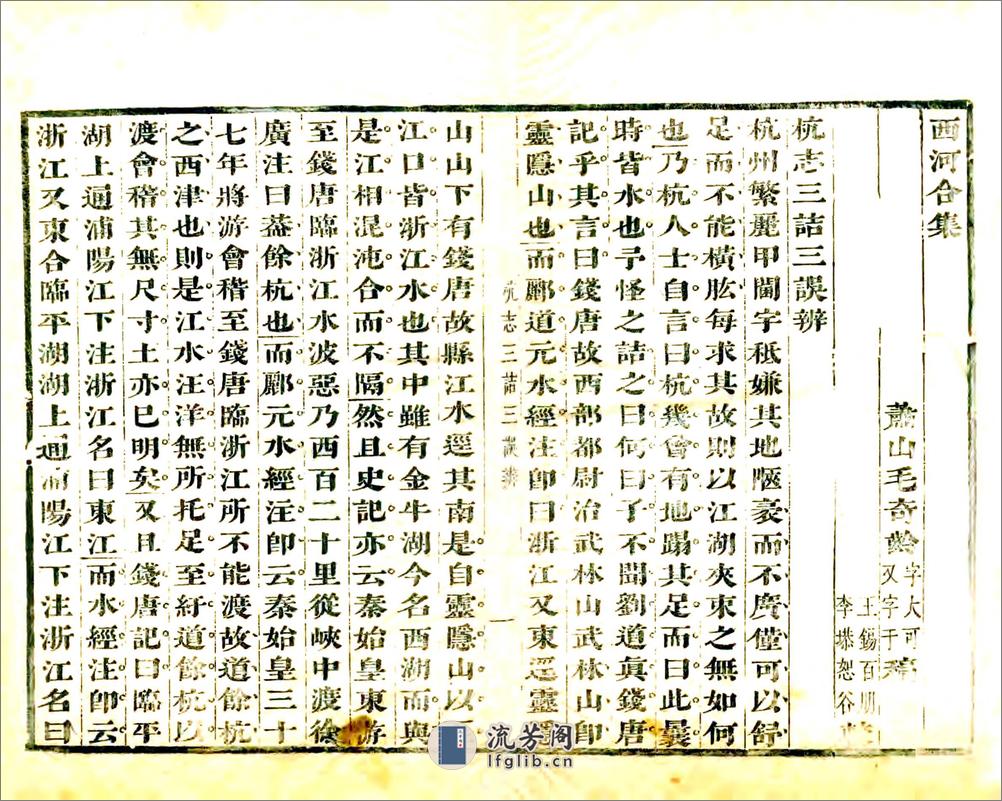 西河合集
蕭山毛奇齡字大可又字于稿
王錫百朋
李塨恕谷
杭志三詰三誤辨
杭州繁麗甲閩字秪嫌其地陿褻而不廣僅可以舒
足而不能橫肱每求其故則以江湖夾束之無如何
也乃杭人士自言曰杭幾會有地蹋其足而曰此曩
時皆水也予怪之詰之曰何曰子不聞劉道眞錢唐
記乎其言曰錢唐故西部都尉治武林山武林山卽
靈隱山也而酈道元水經注卽曰浙江又東逕靈隱
杭志三詰三誤辨
一
山山下有錢唐故縣江水逕其南是自靈隱山以
江口皆浙江水也其中雖有金牛湖今名西湖而與
是江相混沌合而不隔然且史記亦云秦始皇東游
至錢唐臨浙江水波惡乃西百二十里從峽中渡徐
廣注曰葢餘杭也而酈元水經注卽云秦始皇三十
七年將游會稽至錢唐臨浙江所不能渡故道餘杭
之西津也則是江水汪洋無所托足至紆道餘杭以
渡會稽其無尺寸土亦已明矣又且錢唐記曰臨平
湖上通浦陽江下注浙江名曰東江而水經注卽云
浙江又東合臨平湖湖上通浦陽江下注浙江名曰
流芳阁
lfglib.cn